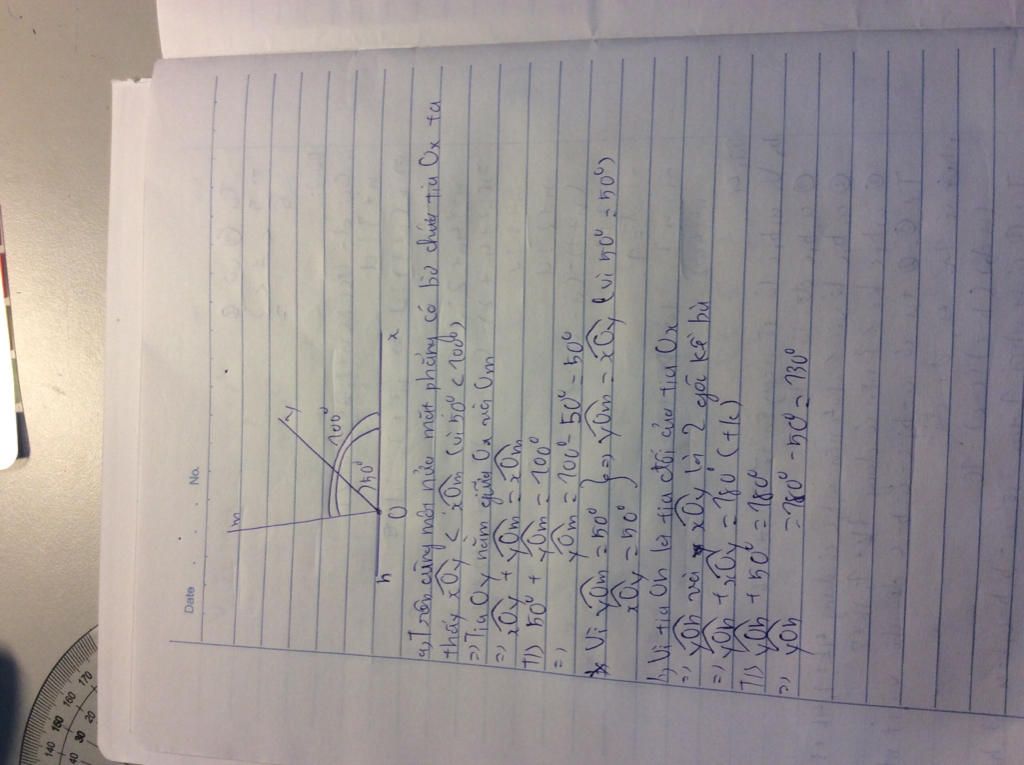 Date
No.
m
y
100⁰
50⁰
h
O
x
a) Trên cùng một nửa mặt phẳng có bờ chứa tia Ox ta
thấy xOy < xOm (vì 50⁰ < 100⁰)
=> Tia Oy nằm giữa Ox và Om
=> xOy + yOm = xOm
TS 50⁰ + yOm = 100⁰
=> yOm = 100⁰ - 50⁰ = 50⁰
* Vì yOm = 50⁰ } => yOm = xOy (vì 50⁰ = 50⁰)
xOy = 50⁰
b) Vì tia Oh là tia đối của tia Ox
=> yOh và xOy là 2 góc kề bù
=> yOh + xOy = 180⁰ (t/c)
TS yOh + 50⁰ = 180⁰
=> yOh = 180⁰ - 50⁰ = 130⁰
140
150
160
170
40
30
20